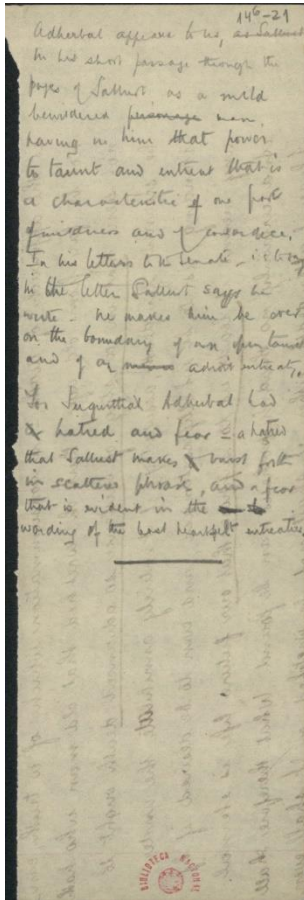 14⁶-21
Adherbal appears to us, as Sallust
in his short passage through the
pages of Sallust as a mild
bewildered personage man,
having in him that power
to taunt and entreat that is
a characteristic of one part
of mildness and of cowardice.
In his letters to the senate
in the letter Sallust says he
wrote he makes him be ever
on the boundary of an open taunt
and of an adroit entreaty.
For Jugurtha Adherbal had
hatred and fear - a hatred
that Sallust makes burst forth
in scattered phrases, and a fear
that is evident in the
wording of the best heartfelt entreaties.
BIBLIOTECA NACIONAL